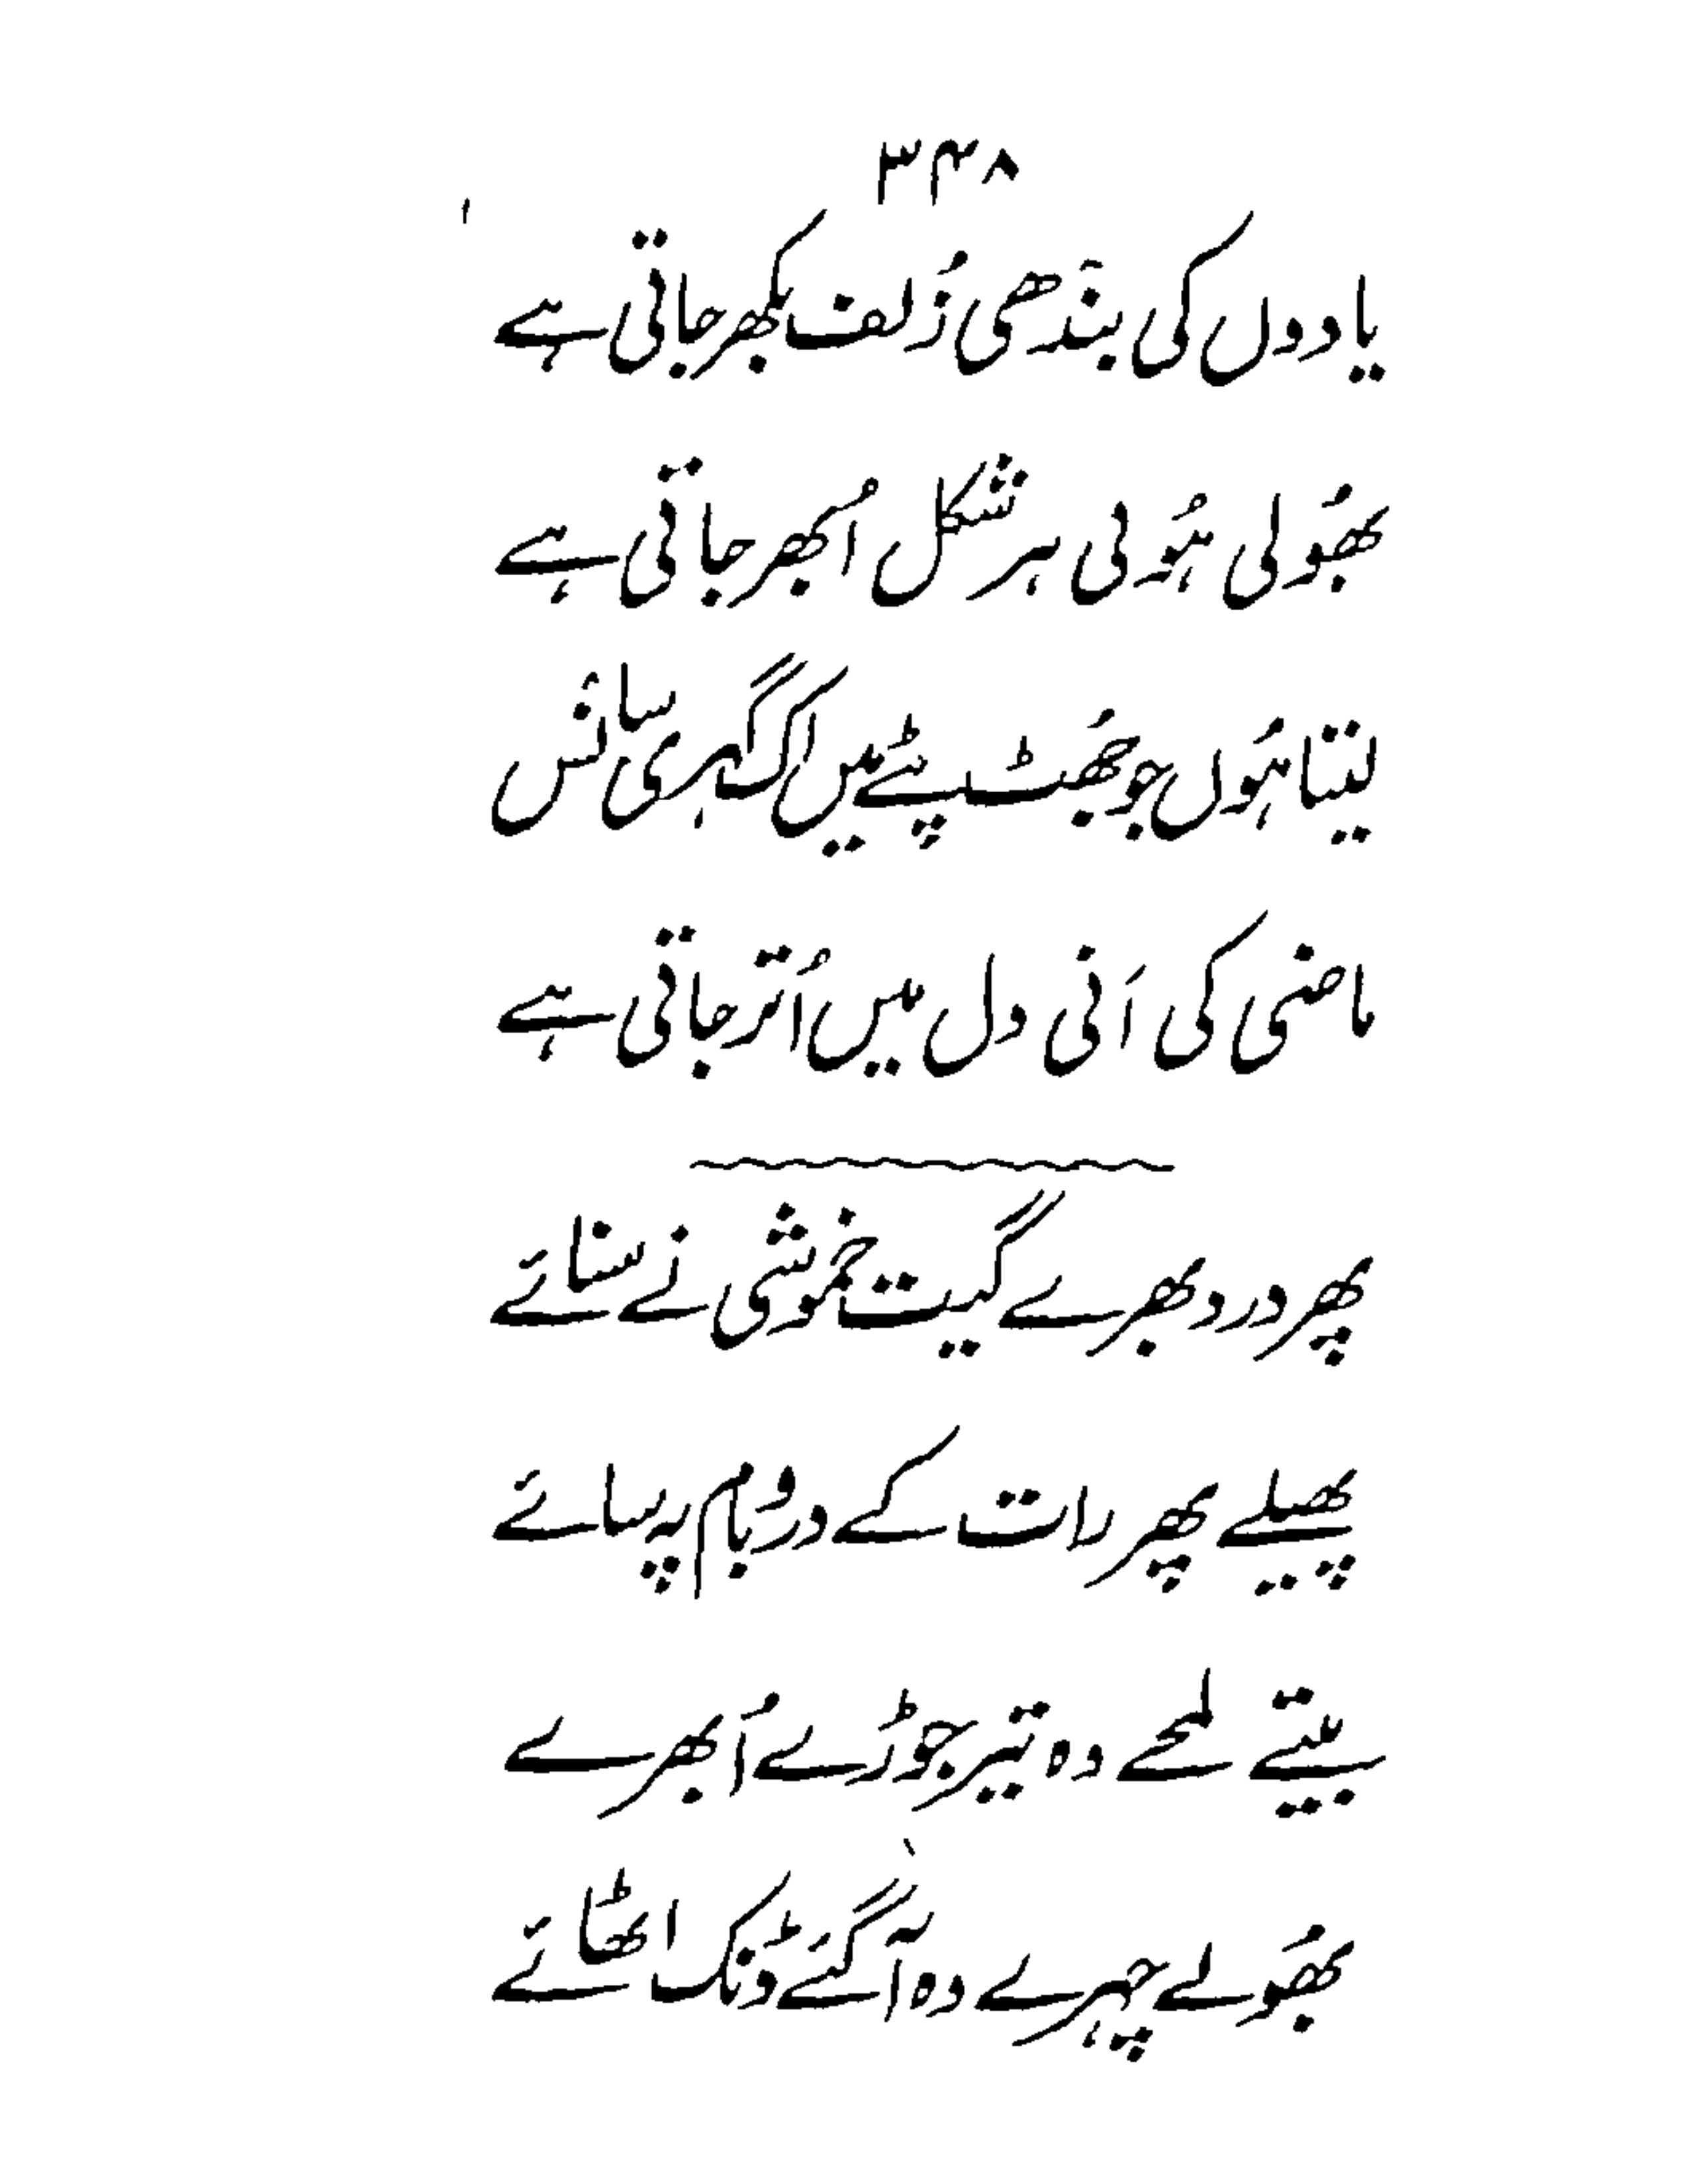 ۳۴۸
یادوں کی بندھی زُلف بکھر جاتی ہے
بھُولی ہُوئی ہر شکل اُبھر جاتی ہے
لیتا ہُوں جو جھُٹ پٹے میں اک گہری سانس
ماضی کی اَنی دل میں اُتر جاتی ہے
پھر درد بھرے گیت خموشی نے سنائے
پھیلے پھر رات کے در و بام پہ سائے
بیتے لمحے وہ تیر جوڑے اُبھرے
بھُولے چہرے وہ آ گئے ڈنک اٹھائے